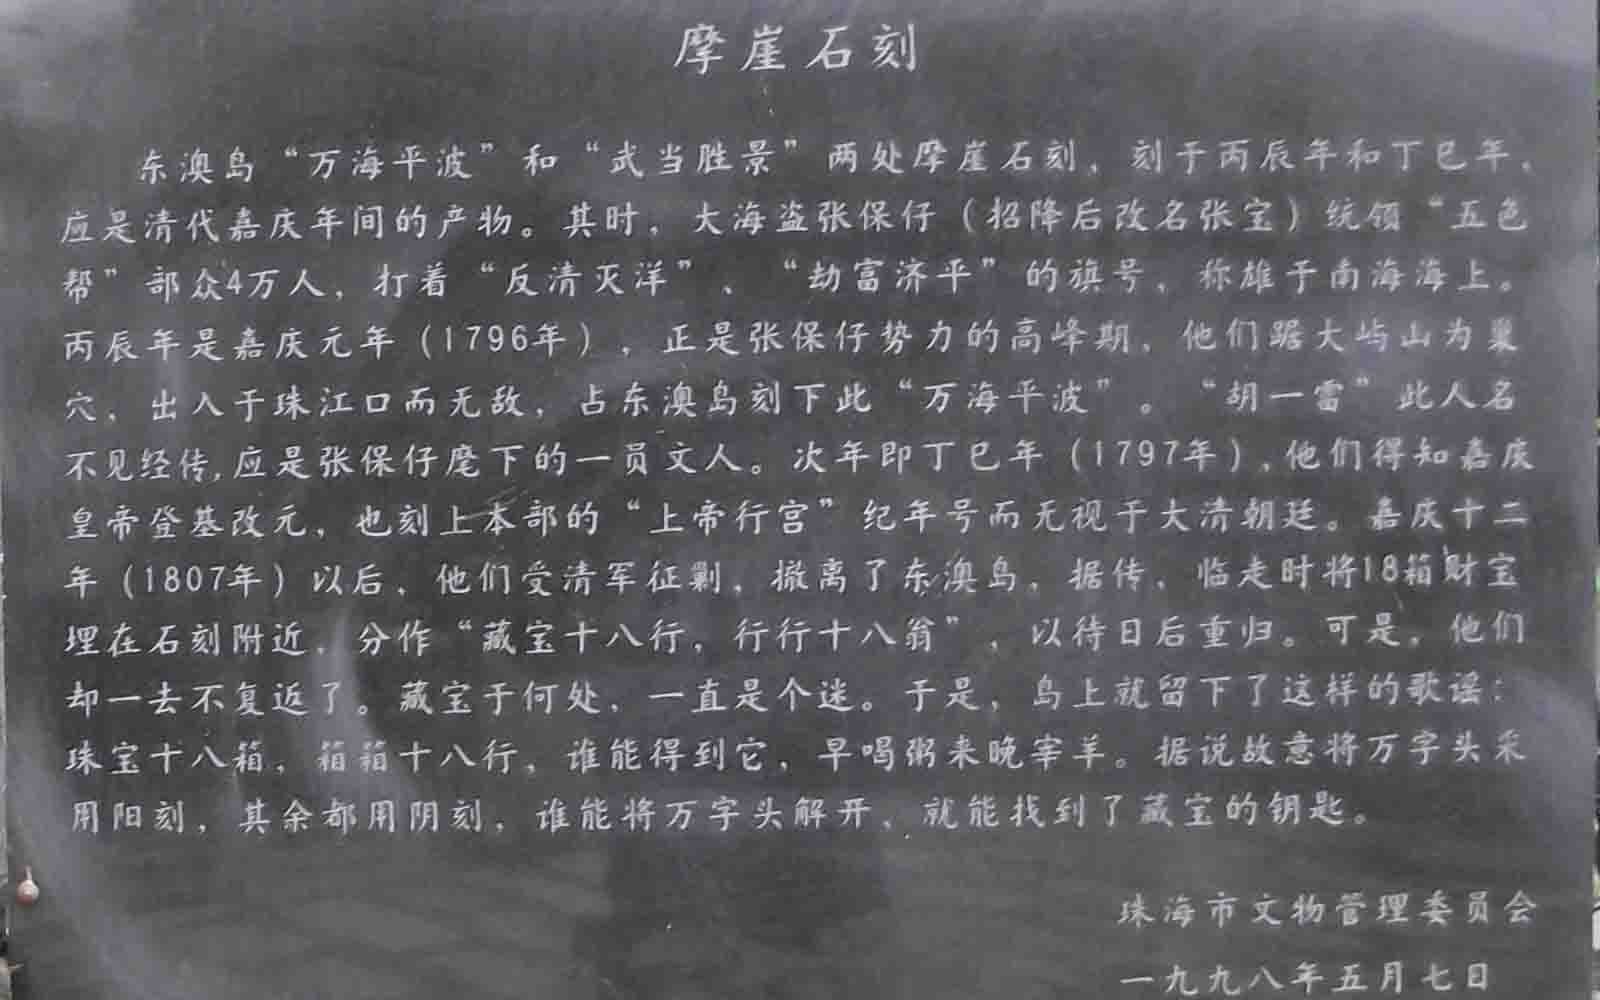 摩崖石刻
东澳岛“万海平波”和“武当胜景”两处摩崖石刻，刻于丙辰年和丁巳年，
应是清代嘉庆年间的产物。其时，大海盗张保仔（招降后改名张宝）统领“五色
帮”部众4万人，打着“反清灭洋”、“劫富济平”的旗号，称雄于南海海上。
丙辰年是嘉庆元年（1796年），正是张保仔势力的高峰期，他们踞大屿山为巢
穴，出入于珠江口而无敌，占东澳岛刻下此“万海平波”。“胡一雷”此人名
不见经传,应是张保仔麾下的一员文人。次年即丁巳年（1797年）,他们得知嘉庆
皇帝登基改元，也刻上本部的“上帝行宫”纪年号而无视于大清朝廷。嘉庆十二
年（1807年）以后，他们受清军征剿，撤离了东澳岛，据传，临走时将18箱财宝
埋在石刻附近，分作“藏宝十八行，行行十八翁”，以待日后重归。可是，他们
却一去不复返了。藏宝于何处，一直是个迷。于是，岛上就留下了这样的歌谣：
珠宝十八箱，箱箱十八行，谁能得到它，早喝粥来晚宰羊。据说故意将万字头采
用阳刻，其余都用阴刻，谁能将万字头解开，就能找到了藏宝的钥匙。
珠海市文物管理委员会
一九九八年五月七日